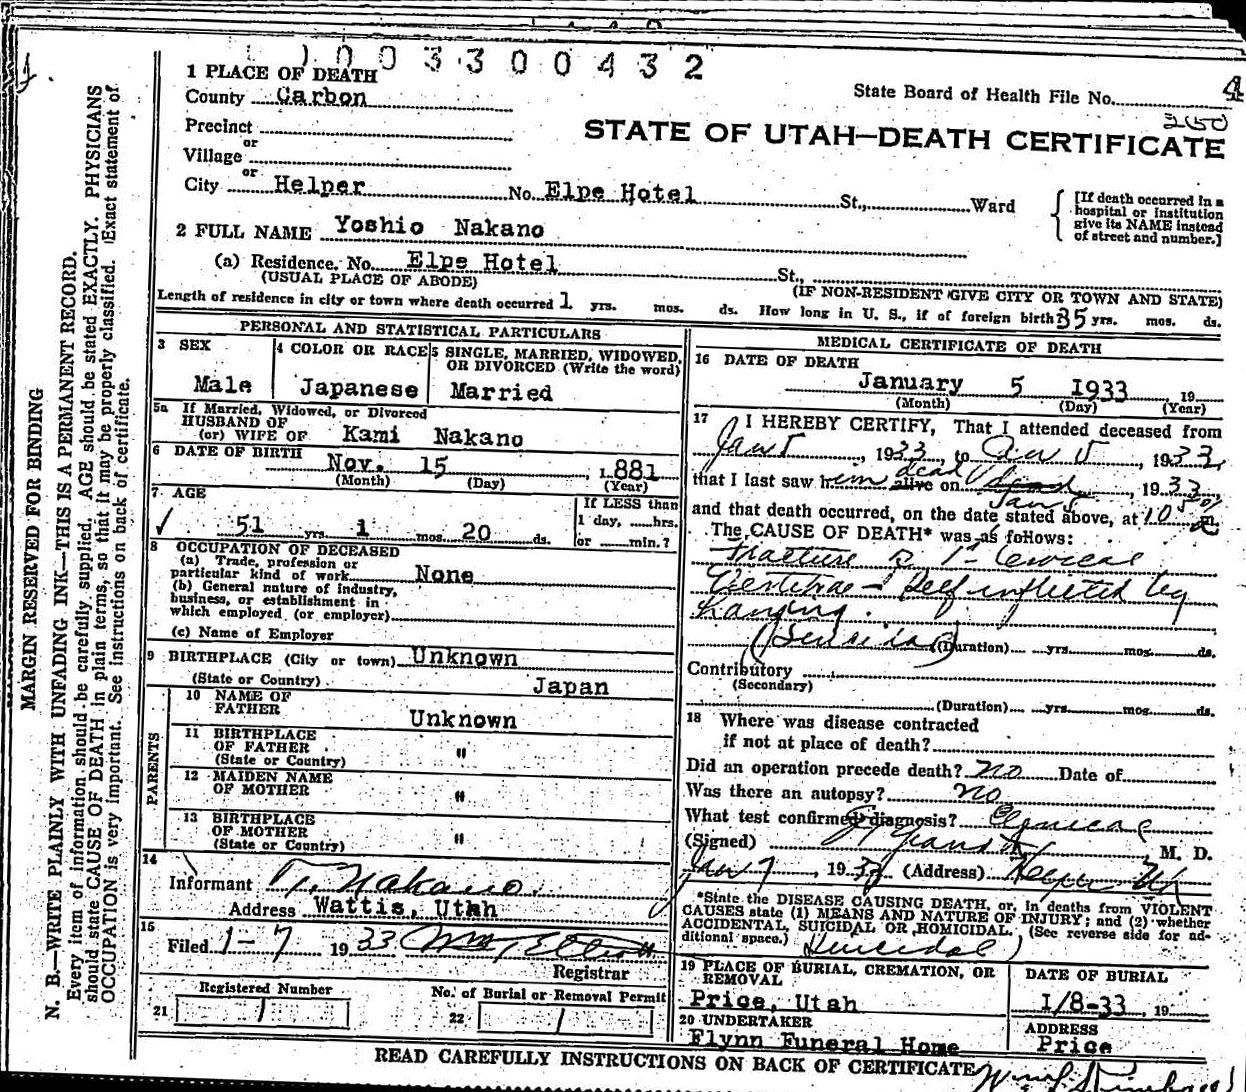 1003300432
1 PLACE OF DEATH
County Carbon
State Board of Health File No. 4
Precinct
or
Village
or
City Helper No. Elpe Hotel St., Ward
260
STATE OF UTAH—DEATH CERTIFICATE
[If death occurred in a
hospital or institution
give its NAME instead
of street and number.]
2 FULL NAME Yoshio Nakano
(a) Residence. No. Elpe Hotel St.,
(USUAL PLACE OF ABODE) (IF NON-RESIDENT GIVE CITY OR TOWN AND STATE)
Length of residence in city or town where death occurred 1 yrs. mos. ds. How long in U. S., if of foreign birth 35 yrs. mos. ds.
PERSONAL AND STATISTICAL PARTICULARS
3 SEX
Male
4 COLOR OR RACE
Japanese
5 SINGLE, MARRIED, WIDOWED,
OR DIVORCED (Write the word)
Married
5a If Married, Widowed, or Divorced
HUSBAND OF
(or) WIFE OF Kami Nakano
6 DATE OF BIRTH
Nov. 15 1881
(Month) (Day) (Year)
7 AGE
51 yrs. 1 mos. 20 ds.
If LESS than
1 day, hrs.
or min.?
8 OCCUPATION OF DECEASED
(a) Trade, profession or
particular kind of work None
(b) General nature of industry,
business, or establishment in
which employed (or employer)
(c) Name of Employer
9 BIRTHPLACE (City or town) Unknown
(State or Country) Japan
PARENTS
10 NAME OF
FATHER Unknown
11 BIRTHPLACE
OF FATHER "
(State or Country)
12 MAIDEN NAME
OF MOTHER "
13 BIRTHPLACE
OF MOTHER "
(State or Country)
14
Informant T. Nakano.
Address Wattis, Utah
15
Filed 1-7 1933
Registrar
Registered Number
21 1
No. of Burial or Removal Permit
22 1
MEDICAL CERTIFICATE OF DEATH
16 DATE OF DEATH
January 5 1933 19
(Month) (Day) (Year)
17 I HEREBY CERTIFY, That I attended deceased from
Jan 5, 1933, to Jan 5, 1933,
that I last saw him alive dead on Jan 5, 1933
and that death occurred, on the date stated above, at 10 m.
The CAUSE OF DEATH* was as follows:
Fracture of 1st Cervical
Vertebrae - Self inflicted by
hanging.
(Suicidal) (Duration) yrs. mos. ds.
Contributory
(Secondary)
(Duration) yrs. mos. ds.
18 Where was disease contracted
if not at place of death?
Did an operation precede death? no Date of
Was there an autopsy? no
What test confirmed diagnosis? Clynical
(Signed) M. D.
Jan 7, 1933 (Address) Helper Ut
*State the DISEASE CAUSING DEATH, or, in deaths from VIOLENT
CAUSES state (1) MEANS AND NATURE OF INJURY; and (2) whether
ACCIDENTAL, SUICIDAL OR HOMICIDAL. (See reverse side for ad-
ditional space.) Suicidal)
19 PLACE OF BURIAL, CREMATION, OR
REMOVAL
Price, Utah
DATE OF BURIAL
1/8-33 19
20 UNDERTAKER
Flynn Funeral Home
ADDRESS
Price
READ CAREFULLY INSTRUCTIONS ON BACK OF CERTIFICATE
MARGIN RESERVED FOR BINDING
N. B.—WRITE PLAINLY WITH UNFADING INK—THIS IS A PERMANENT RECORD.
Every item of information should be carefully supplied. AGE should be stated EXACTLY. PHYSICIANS
should state CAUSE OF DEATH in plain terms, so that it may be properly classified. Exact statement of
OCCUPATION is very important. See instructions on back of certificate.